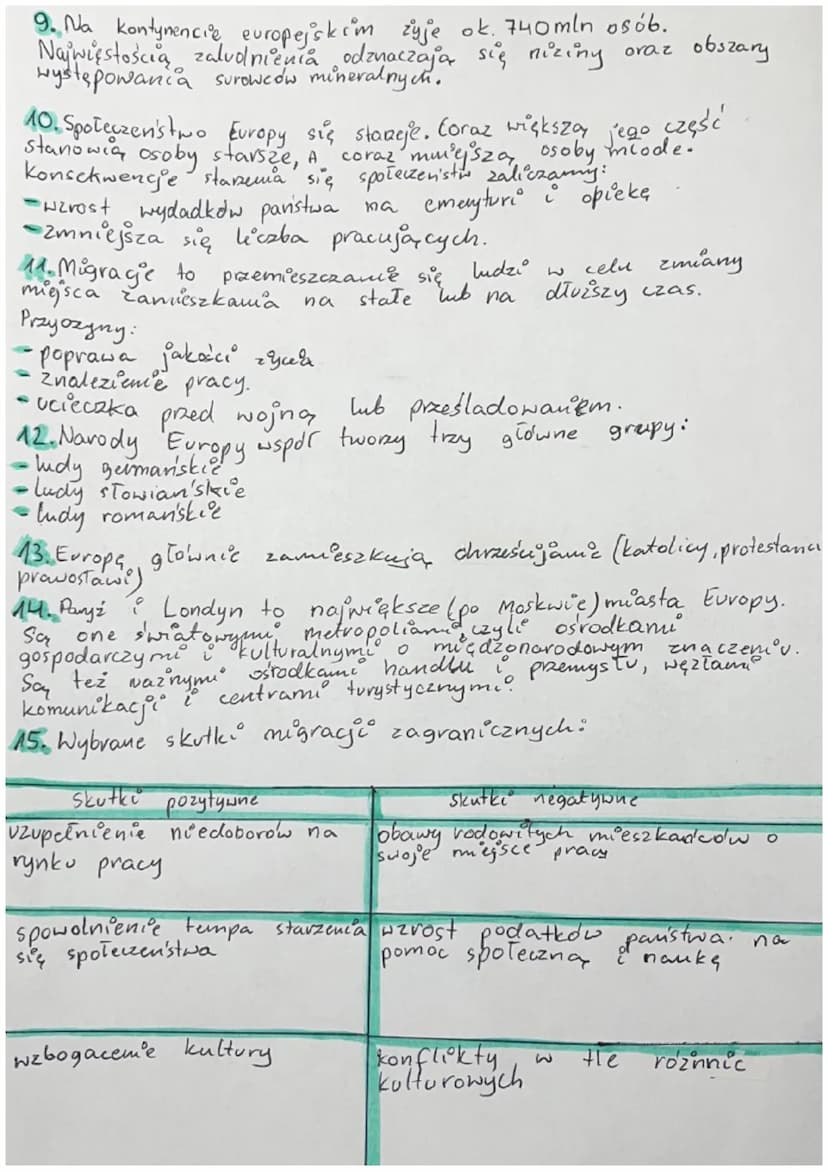 9. Na kontynencie europejskim żyje ok. 740mln osób.
Najwięstością zaludnienia odznaczają się niziny oraz obszary
występowania surowców mineralnych.
10. Społeczeństwo Europy się starzeje. Coraz większą jego część
stanowią osoby starsze, A coraz mniejszą osoby młode.
Konsekwencje starzenia się społeczeństw zaliczamy:
-wzrost wydadków państwa na emerytury i opiekę
-zmniejsza się liczba pracujących.
11. Migracje to przemieszczanie się ludzi w celu zmiany
miejsca zamieszkania na stałe lub na dłuższy czas.
Przyozyny:
-poprawa jakości życia
-znalezienie pracy.
-ucieczka przed wojną lub prześladowaniem.
12. Narody Europy współ tworzy trzy główne grupy:
-ludy germańskie
-ludy słowiańskie
-ludy romańskie
13. Europę głównie zamieszkują chrześcijanie (katolicy, protestanci
prawosławi)
14. Paryż i Londyn to największe (po Moskwie) miasta Europy.
Są one światowymi metropoliami, czyli ośrodkami
gospodarczymi i kulturalnymi o międzonarodowym znaczeniu.
Są też ważnymi ośrodkami handlu i przemysłu, węzłami
komunikacji i centrami turystycznymi.
15. Wybrane skutki migracji zagranicznych:
skutki pozytywne
skutki negatywne
uzupełnienie niedoborów na
rynku pracy
obawy rodowitych mieszkańców o
swoje miejsce pracy
spowolnienie tempa starzenia
się społeczeństwa
wzrost podatków państwa na
pomoc społeczną i naukę
wzbogacenie kultury
konflikty w tle różnnic
kulturowych